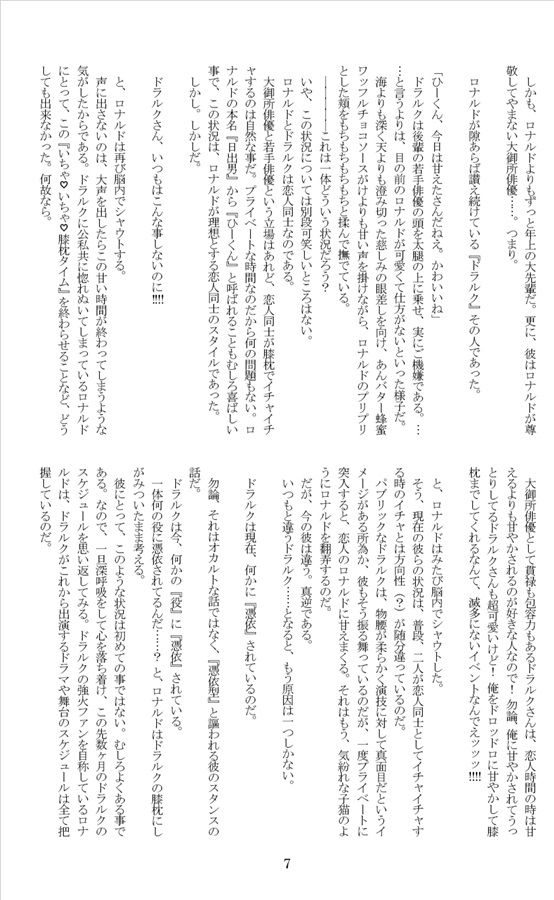 しかも、ロナルドよりもずっと年上の大先輩だ。更に、彼はロナルドが尊
敬してやまない大御所俳優……。つまり。
ロナルドが隙あらば讃え続けている『ドラルク』その人であった。
「ひーくん、今日は甘えたさんだねえ。かわいいね」
ドラルクは後輩の若手俳優の頭を太腿の上に乗せ、実にご機嫌である。…
…と言うよりは、目の前のロナルドが可愛くて仕方がないといった様子だ。
海よりも深く天よりも澄み切った慈しみの眼差しを向け、あんバター蜂蜜
ワッフルチョコソースがけよりも甘い声を掛けながら、ロナルドのプリプリ
とした頬をもちもちもちもちと揉んで撫でている。
――――これは一体どういう状況だろう？
いや、この状況については別段可笑しいところはない。
ロナルドとドラルクは恋人同士なのである。
大御所俳優と若手俳優という立場はあれど、恋人同士が膝枕でイチャイチ
ャするのは自然な事だ。プライベートな時間なのだから何の問題もない。ロ
ナルドの本名『日出男』から『ひーくん』と呼ばれることもむしろ喜ばしい
事で、この状況は、ロナルドが理想とする恋人同士のスタイルであった。
しかし。しかしだ。
ドラルクさん、いつもはこんな事しないのに!!!!
と、ロナルドは再び脳内でシャウトする。
声に出さないのは、大声を出したらこの甘い時間が終わってしまうような
気がしたからである。ドラルクに公私共に惚れぬいてしまっているロナルド
にとって、この『いちゃ♡いちゃ♡膝枕タイム』を終わらせることなど、どう
しても出来なかった。何故なら。
大御所俳優として貫禄も包容力もあるドラルクさんは、恋人時間の時は甘
えるよりも甘やかされるのが好きな人なので！ 勿論、俺に甘やかされてうっ
とりしてるドラルクさんも超可愛いけど！ 俺をドロッドロに甘やかして膝
枕までしてくれるなんて、滅多にないイベントなんでえッッッ!!!!
と、ロナルドはみたび脳内でシャウトした。
そう、現在の彼らの状況は、普段、二人が恋人同士としてイチャイチャす
る時のイチャとは方向性（？）が随分違っているのだ。
パブリックなドラルクは、物腰が柔らかく演技に対して真面目だというイ
メージがある所為か、彼もそう振る舞っているのだが、一度プライベートに
突入すると、恋人のロナルドに甘えまくる。それはもう、気紛れな子猫のよ
うにロナルドを翻弄するのだ。
だが、今の彼は違う。真逆である。
いつもと違うドラルク……となると、もう原因は一つしかない。
ドラルクは現在、何かに『憑依』されているのだ。
勿論、それはオカルトな話ではなく、『憑依型』と謳われる彼のスタンスの
話だ。
ドラルクは今、何かの『役』に『憑依』されている。
一体何の役に憑依されてるんだ……？ と、ロナルドはドラルクの膝枕にし
がみついたまま考える。
彼にとって、このような状況は初めての事ではない。むしろよくある事で
ある。なので、一旦深呼吸をして心を落ち着け、この先数ヶ月のドラルクの
スケジュールを思い返してみる。ドラルクの強火ファンを自称しているロナ
ルドは、ドラルクがこれから出演するドラマや舞台のスケジュールは全て把
握しているのだ。
7